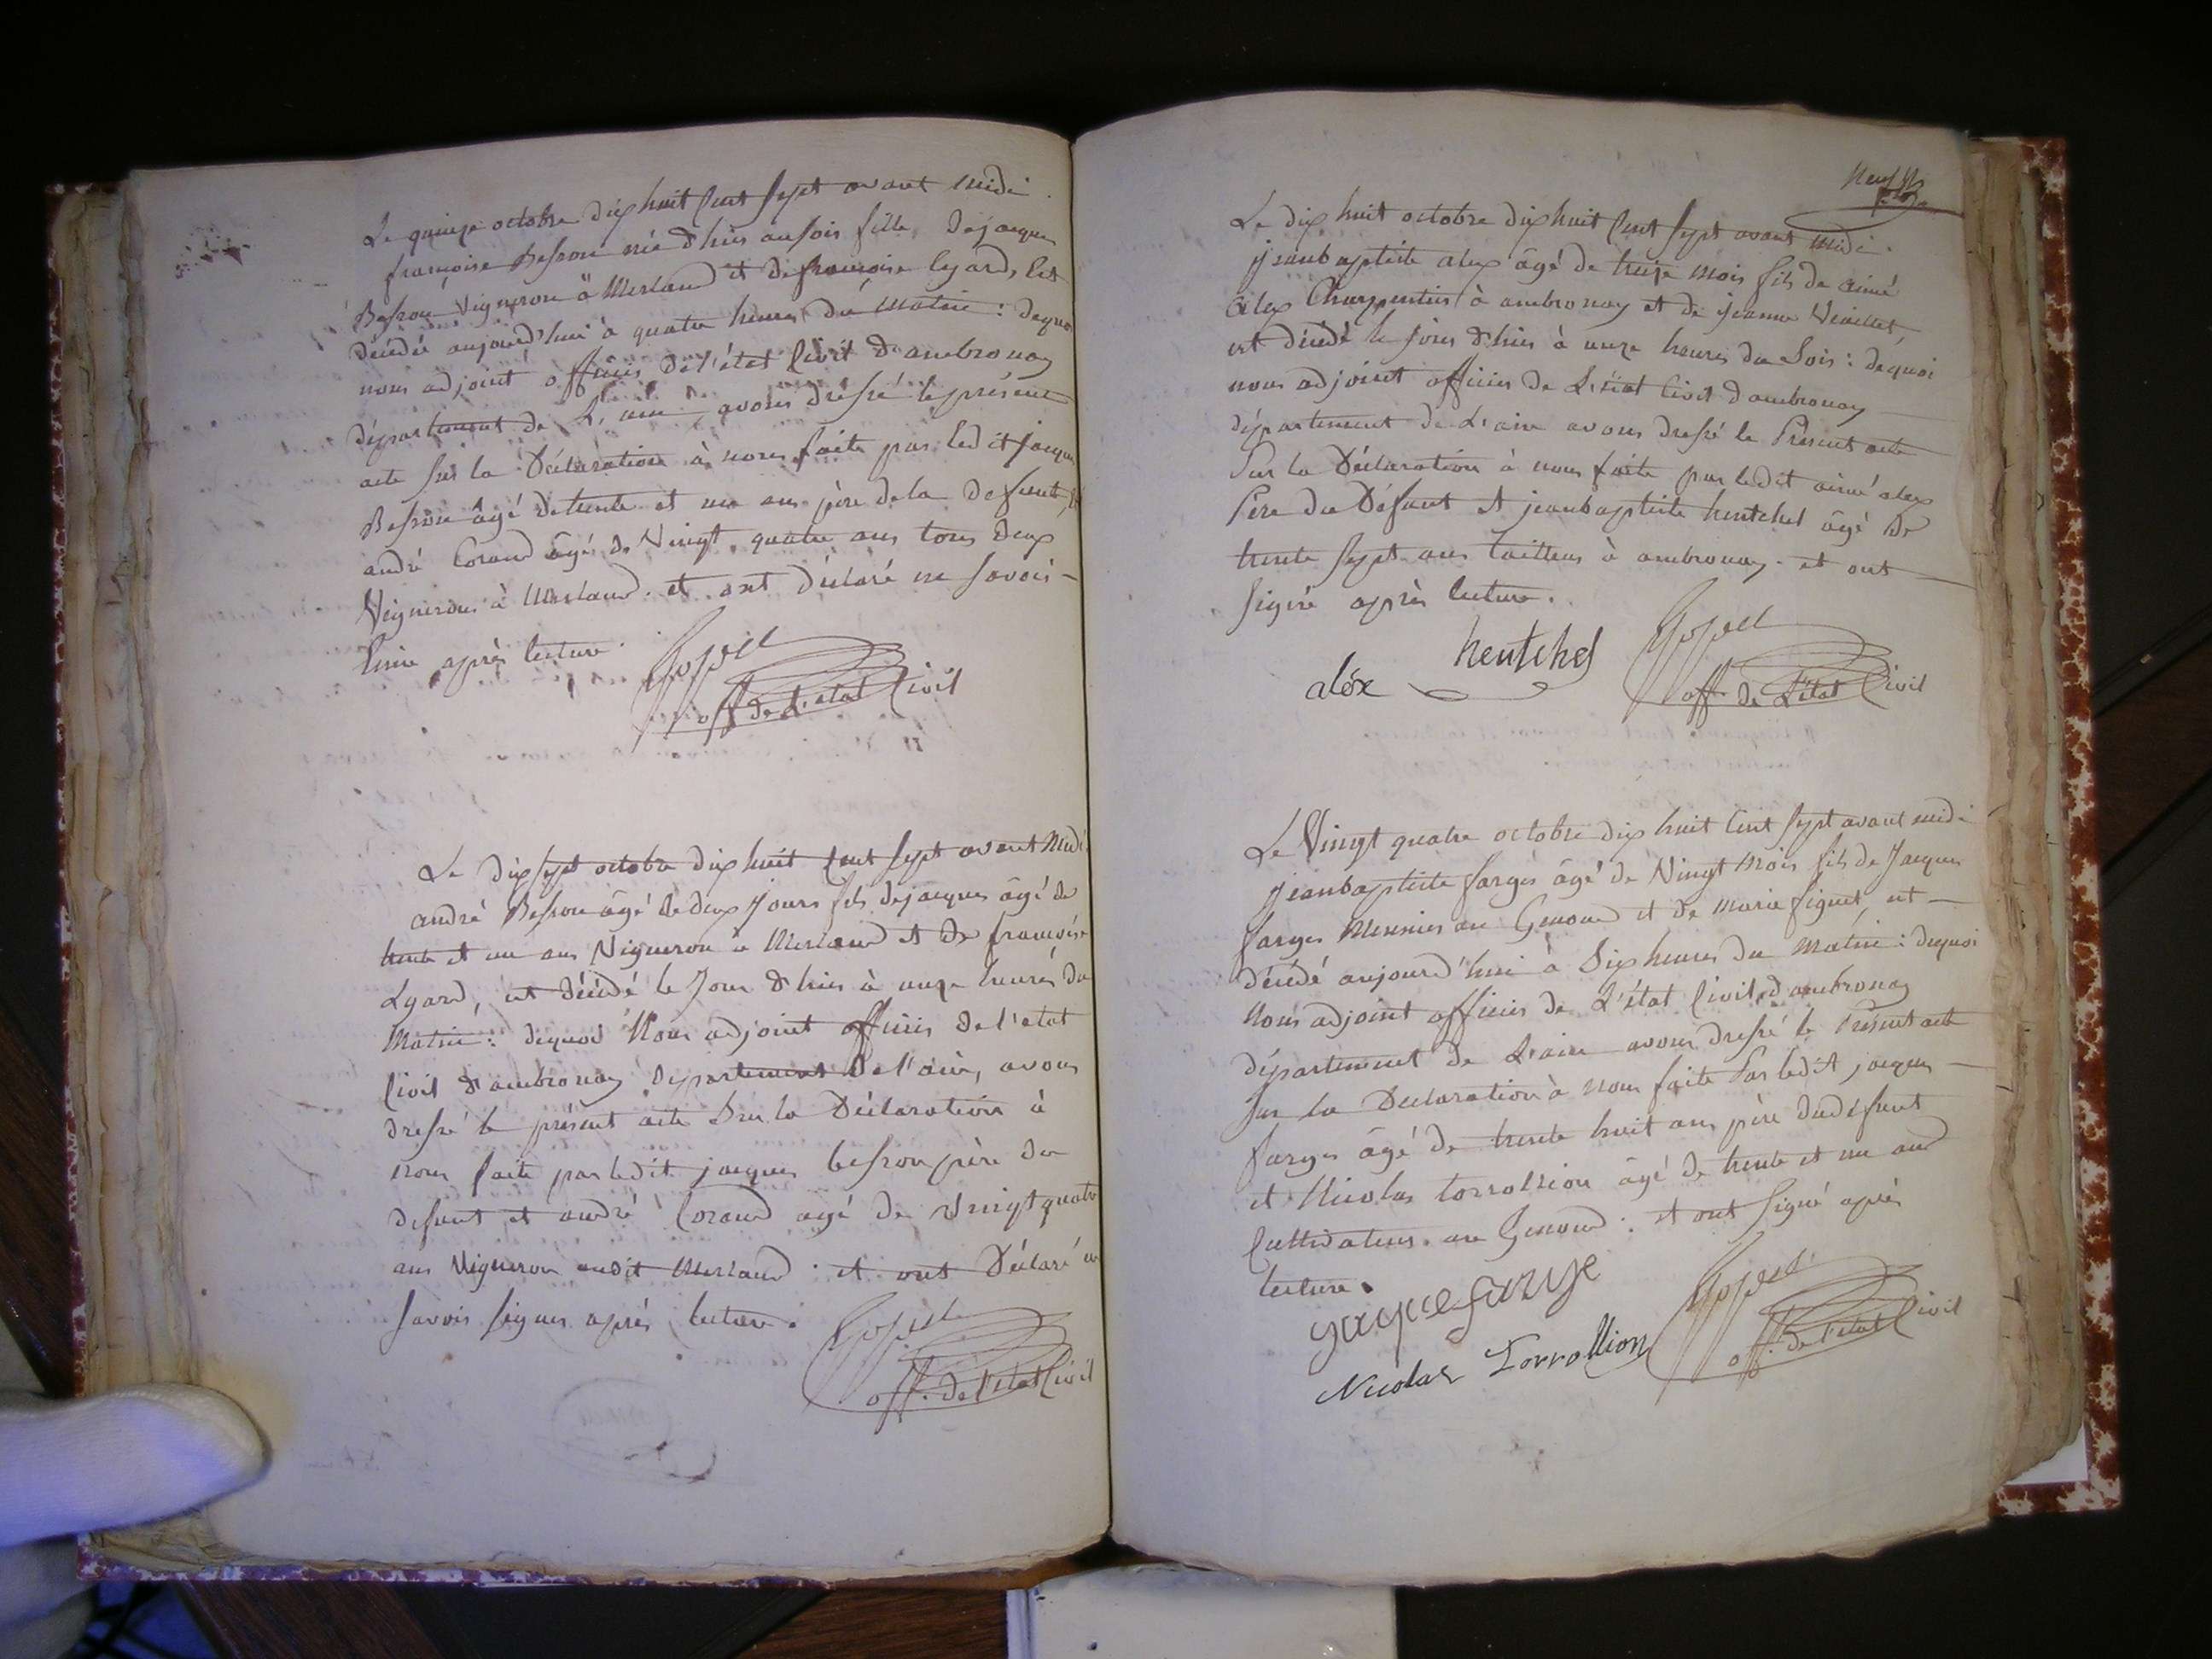 Le quinze octobre dix huit Cent Sept avant midi
françoise Besson née d'hier au soir fille de jacques
Besson Vigneron à Merland et de françoise Lyard, est
décédée aujourd'hui à quatre heures du matin : dequoi
nous adjoint officier de l'état Civil d'ambronay
département de L'ain avons dressé le présent
acte sur la Déclaration à nous faite par ledit jacques
Besson âgé de trente et un ans père de la defunte, et
andré Corand âgé de Vingt quatre ans tous deux
Vignerons à Merland. et ont déclaré ne savoir
lire après lecture.
off de L'état Civil
Le dix sept octobre dix huit Cent Sept avant Midi
andré Besson âgé de deux Jours fils de jacques âgé de
trente et un ans Vigneron à Merland et de françoise
Lyard, est décédé le Jour d'hier à onze heures du
Matin : dequoi Nous adjoint officier de l'etat
Civil d'ambronay département de l'ain, avons
dressé le présent acte Sur la Déclaration à
nous faite par ledit jacques besson père du
defunt et andré Corand agé de Vningt quatre
ans Vigneron audit Merland. et ont Déclaré ne
savoir signer après lecture.
off. de l'état Civil
Le dix huit octobre dix huit Cent Sept avant Midi.
jeanbaptiste alex âgé de treize mois fils de aimé
alex Charpentier à ambronay et de jeanne Vieillet,
est décédé le jour d'hier à onze heures du Soir : dequoi
nous adjoint officier de L'état Civil d'ambronay
département de L'ain avons dressé le Présent acte
Sur la Déclaration à nous faite par ledit aimé alex
Père du Défunt et jeanbaptiste hentchel âgé de
trente sept ans tailleur à ambronay. et ont
signé après lecture.
alex hentchel
off de L'état Civil
Le Vingt quatre octobre dix huit Cent Sept avant midi
jeanbaptiste farges âgé de Vingt mois fils de Jacques
farges Meunier au Genoud et de marie figuet, est
décédé aujourd'hui à Six heures du matin : dequoi
Nous adjoint officier de L'état Civil d'ambronay
département de L'ain avons dressé le Présent acte
Sur la Declaration à nous faite Par ledit jacques
farges âgé de trente huit ans père du défunt
et Nicolas torrollion âgé de trente et un ans
Cultivateur au Genoud : et ont Signé après
lecture.
jaque farge
Nicolas Torrollion
off. de l'état Civil